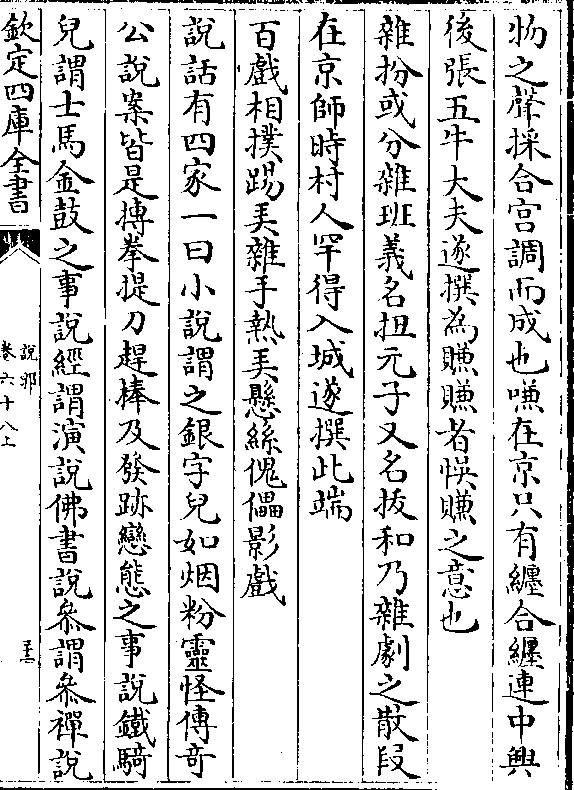 物之聲採合宮調而成也嗛在京只有纏合纏連中興
後張五牛大夫遂撰為賺賺者悞賺之意也
雜扮或分雜班義名扭元子又名拔和乃雜劇之散段
在京師時村人罕得入城遂撰此端
百戲相撲踢弄雜手執弄懸絲傀儡影戲
說話有四家一曰小說謂之銀字兒如烟粉靈怪傳竒
公說案皆是搏拳提刀趕棒及發跡戀態之事說鐵騎
兒謂士馬金鼓之事說經謂演說佛書說叅謂叅禪說
欽定四庫全書
說郛
卷六十八上